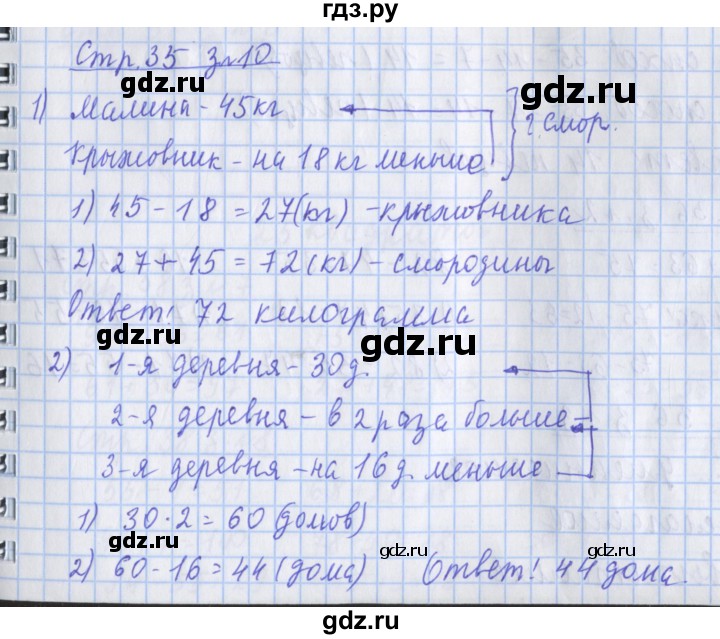 гдз.ру
Стр.35 з.10
gdz.ru
gdz.ru
1) Малина - 45кг
? смор.
Крыжовник - на 18 кг меньше
1) 45 - 18 = 27(кг) - крыжовника
gdz.ru
gdz.ru
2) 27 + 45 = 72 (кг) - смородины
Ответ! 72 килограмма
gdz.ru
gdz.ru
2) 1-я деревня - 30 д.
2-я деревня - в 2 раза больше
gdz.ru
gdz.ru
3-я деревня - на 16 д. меньше
1) 30 · 2 = 60 (домов)
gdz.ru
gdz.ru
gdz.ru
2) 60 - 16 = 44 (дома) Ответ! 44 дома.
gdz.ru